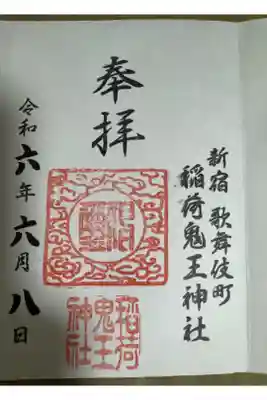 新宿 歌舞伎町
稲荷鬼王神社
奉拝
令和六年六月八日
稲荷
鬼王
神社